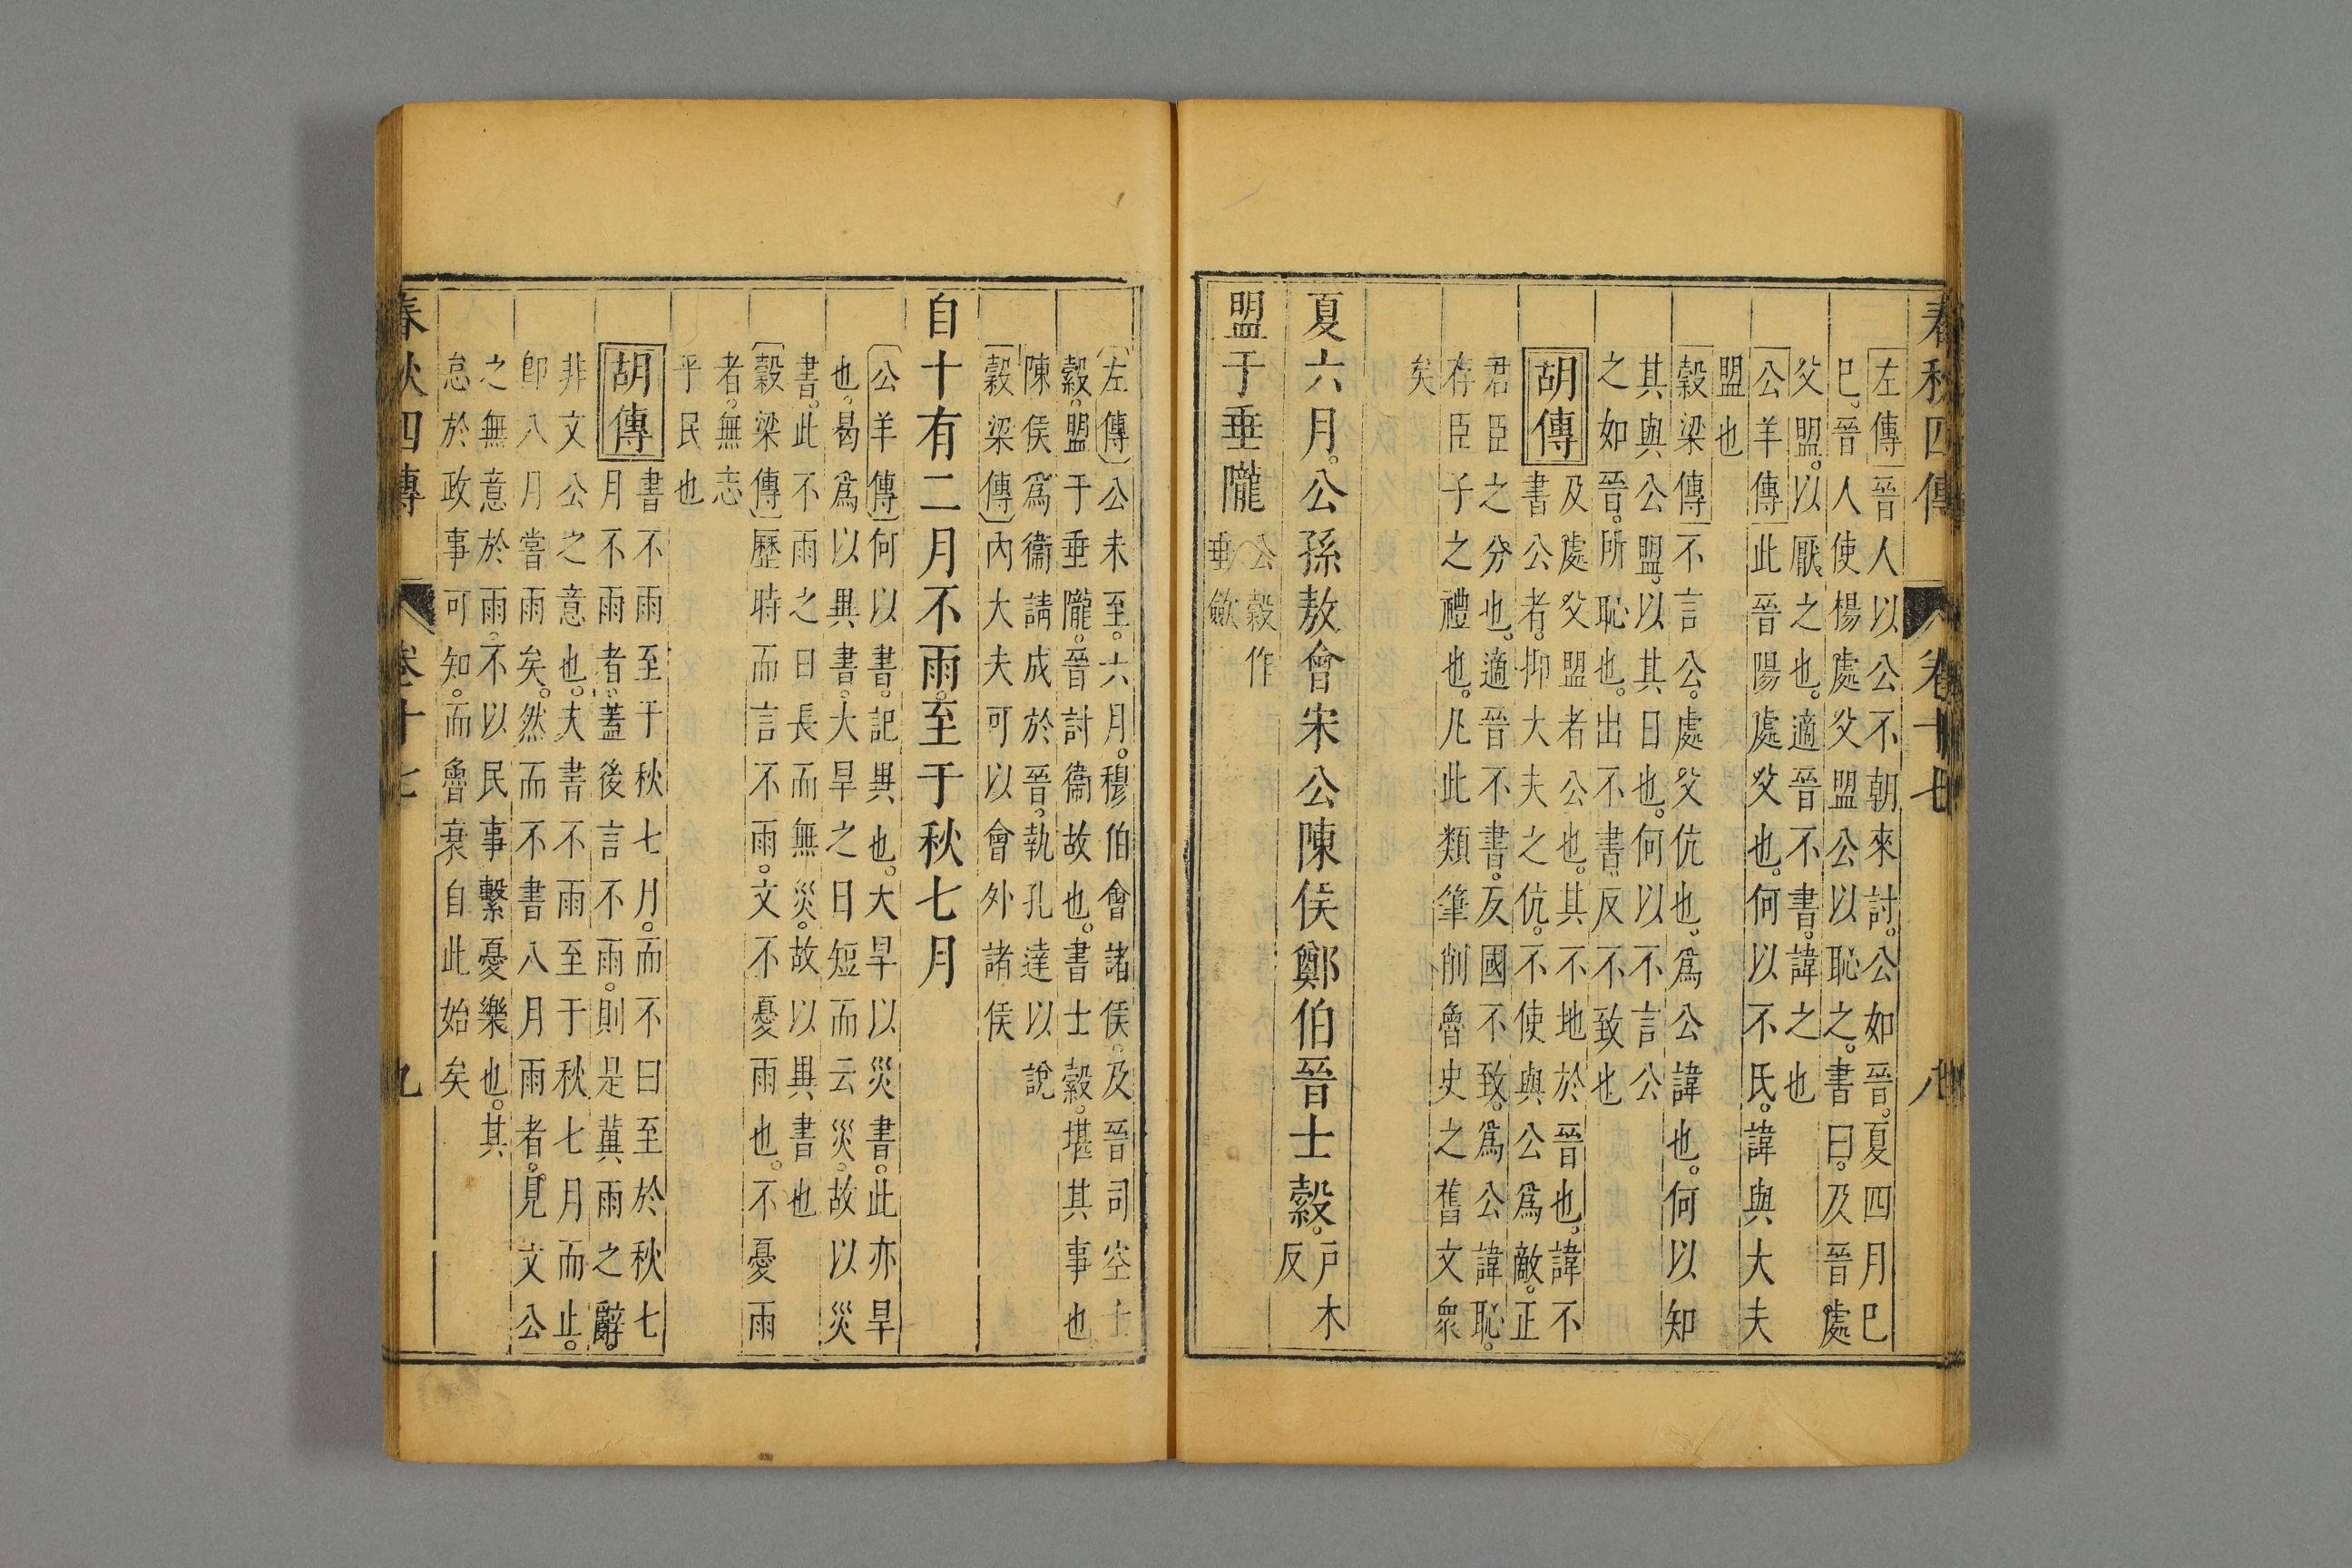 春秋四傳 卷十七 八
左傳晉人以公不朝來討。公如晉。夏四月巳
巳。晉人使楊處父盟公以恥之。書曰。及晉處
父盟。以厭之也。適晉不書。諱之也
公羊傳此晉陽處父也。何以不氏。諱與大夫
盟也
穀梁傳不言公。處父伉也。爲公諱也。何以知
其與公盟。以其日也。何以不言公
之如晉。所恥也。出不書。反不致也
胡傳及處父盟者公也。其不地於晉也。諱不
書公者。抑大夫之伉。不使與公爲敵。正
君臣之分也。適晉不書。反國不致。爲公諱恥。
存臣子之禮也。凡此類筆削魯史之舊文衆
矣
夏六月。公孫敖會宋公陳侯鄭伯晉士縠。戸木反
盟于垂隴 公穀作垂斂
左傳公未至。六月。穆伯會諸侯。及晉司空士
縠。盟于垂隴。晉討衞故也。書士縠。堪其事也。
陳侯爲衞請成於晉。執孔達以說
穀梁傳內大夫可以會外諸侯
自十有二月不雨。至于秋七月
公羊傳何以書。記異也。大旱以災書。此亦旱
也。曷爲以異書。大旱之日短而云災。故以災
書。此不雨之日長而無災。故以異書也
穀梁傳歷時而言不雨。文不憂雨也。不憂雨
者。無志
乎民也
胡傳書不雨至于秋七月。而不曰至於秋七
月不雨者。蓋後言不雨。則是冀雨之辭。
非文公之意也。夫書不雨至于秋七月而止。
卽八月嘗雨矣。然而不書八月雨者。見文公
之無意於雨。不以民事繫憂樂也。其
怠於政事可知。而魯衰自此始矣
春秋四傳 卷十七 九